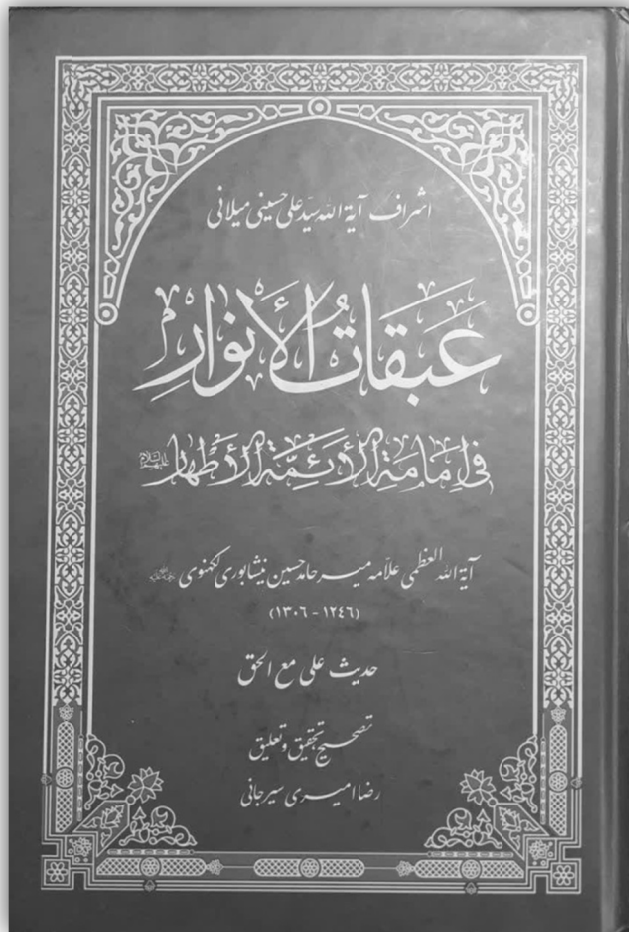 اشراف آیة الله سیّد علی حسینی میلانی
عَبَقاتُ الأَنوارِ
في إمامَةِ الأَئِمَّةِ الأَطهارِ علیهم السلام
آیة الله العظمی علاّمه میر حامد حسین نیشابوری لکهنوی
(۱۲٤٦ - ۱۳۰٦)
حدیث علی مع الحق
تصحیح تحقیق و تعلیق
رضا امیری سیرجانی